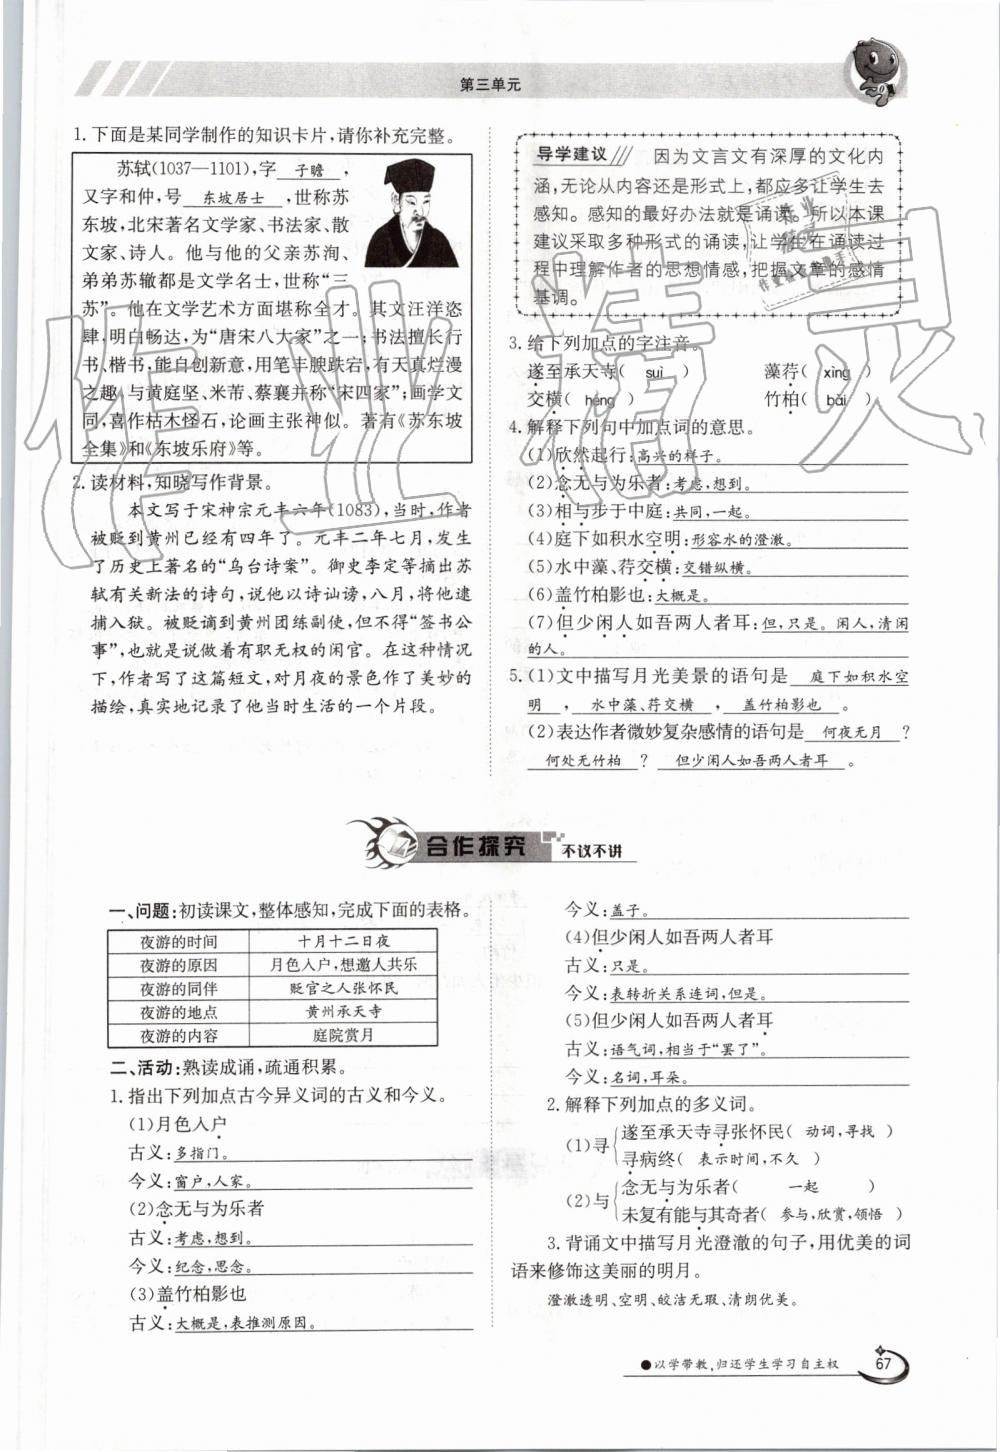 第三单元
1. 下面是某同学制作的知识卡片,请你补充完整。
苏轼(1037—1101),字 子瞻 ,
又字和仲,号 东坡居士 ,世称苏
东坡,北宋著名文学家、书法家、散
文家、诗人。他与他的父亲苏洵、
弟弟苏辙都是文学名士,世称“三
苏”。他在文学艺术方面堪称全才。其文汪洋恣
肆,明白畅达,为“唐宋八大家”之一;书法擅长行
书、楷书,能自创新意,用笔丰腴跌宕,有天真烂漫
之趣,与黄庭坚、米芾、蔡襄并称“宋四家”;画学文
同,喜作枯木怪石,论画主张神似。著有《苏东坡
全集》和《东坡乐府》等。
2. 读材料,知晓写作背景。
本文写于宋神宗元丰六年(1083),当时,作者
被贬到黄州已经有四年了。元丰二年七月,发生
了历史上著名的“乌台诗案”。御史李定等摘出苏
轼有关新法的诗句,说他以诗讪谤,八月,将他逮
捕入狱。被贬谪到黄州团练副使,但不得“签书公
事”,也就是说做着有职无权的闲官。在这种情况
下,作者写了这篇短文,对月夜的景色作了美妙的
描绘,真实地记录了他当时生活的一个片段。
导学建议 因为文言文有深厚的文化内
涵,无论从内容还是形式上,都应多让学生去
感知。感知的最好办法就是诵读。所以本课
建议采取多种形式的诵读,让学生在诵读过
程中理解作者的思想情感,把握文章的感情
基调。
3. 给下列加点的字注音。
遂至承天寺( suì ) 藻荇( xìng )
交横( héng ) 竹柏( bǎi )
4. 解释下列句中加点词的意思。
(1)欣然起行:高兴的样子。
(2)念无与为乐者:考虑,想到。
(3)相与步于中庭:共同,一起。
(4)庭下如积水空明:形容水的澄澈。
(5)水中藻、荇交横:交错纵横。
(6)盖竹柏影也:大概是。
(7)但少闲人如吾两人者耳:但,只是。闲人,清闲
的人。
5. (1)文中描写月光美景的语句是 庭下如积水空
明 , 水中藻、荇交横 , 盖竹柏影也 。
(2)表达作者微妙复杂感情的语句是 何夜无月 ?
何处无竹柏 ? 但少闲人如吾两人者耳 。
合作探究 不议不讲
一、问题:初读课文,整体感知,完成下面的表格。
夜游的时间 十月十二日夜
夜游的原因 月色入户,想邀人共乐
夜游的同伴 贬官之人张怀民
夜游的地点 黄州承天寺
夜游的内容 庭院赏月
二、活动:熟读成诵,疏通积累。
1. 指出下列加点古今异义词的古义和今义。
(1)月色入户
古义:多指门。
今义:窗户,人家。
(2)念无与为乐者
古义:考虑,想到。
今义:纪念,思念。
(3)盖竹柏影也
古义:大概是,表推测原因。
今义:盖子。
(4)但少闲人如吾两人者耳
古义:只是。
今义:表转折关系连词,但是。
(5)但少闲人如吾两人者耳
古义:语气词,相当于“罢了”。
今义:名词,耳朵。
2. 解释下列加点的多义词。
(1)寻 遂至承天寺寻张怀民( 动词,寻找 )
寻病终( 表示时间,不久 )
(2)与 念无与为乐者( 一起 )
未复有能与其奇者( 参与,欣赏,领悟 )
3. 背诵文中描写月光澄澈的句子,用优美的词
语来修饰这美丽的明月。
澄澈透明、空明、皎洁无瑕、清朗优美。
●以学带教,归还学生学习自主权
67
作业精灵